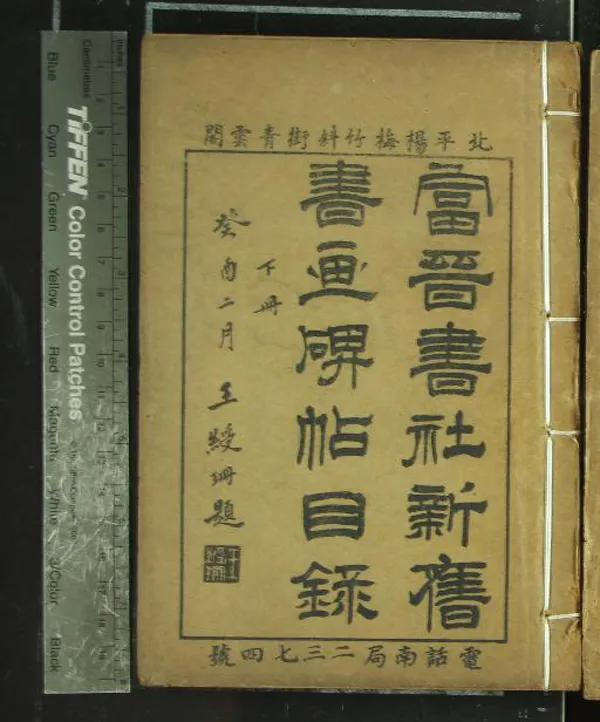 北平楊梅竹斜街青雲閣
富晉書社新舊
書画碑帖目錄
下冊
癸酉二月 王綬珊題
電話南局二三七四號
Inches
Centimetres
TIFFEN Color Control Patches
Blue
Cyan
Green
Yellow
Red
Magenta
White
3/Color
Black